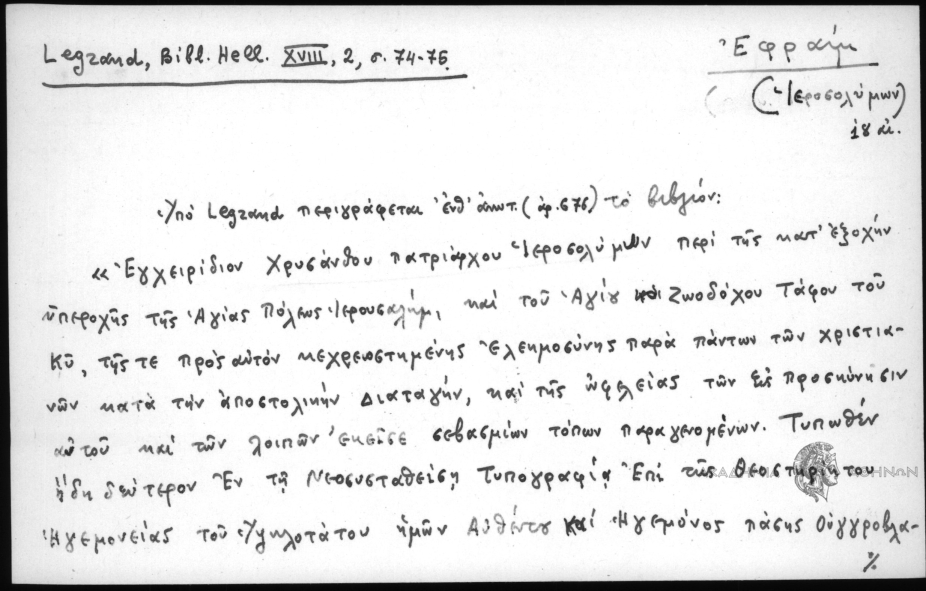 Legrand, Bibl. Hell. XVIII, 2, σ. 74-75.
Ἐφραὶμ
(Ἱεροσολύμων)
18 αἰ.
Ὑπὸ Legrand περιγράφεται ἐνθ' ἀνωτ. (ἀρ. 676) τὸ βιβλίον:
«Ἐγχειρίδιον Χρυσάνθου πατριάρχου Ἱεροσολύμων περὶ τῆς κατ' ἐξοχὴν
ὑπεροχῆς τῆς Ἁγίας Πόλεως Ἱερουσαλήμ, καὶ τοῦ Ἁγίου καὶ Ζωοδόχου Τάφου τοῦ
Κῦ, τῆς τε πρὸς αὐτὸν κεχρεωστημένης Ἐλεημοσύνης παρὰ πάντων τῶν χριστια-
νῶν κατὰ τὴν ἀποστολικὴν Διαταγήν, καὶ τῆς ὠφελείας τῶν εἰς προσκύνησιν
αὐτοῦ καὶ τῶν λοιπῶν ἐκεῖσε σεβασμίων τόπων παραγενομένων. Τυπωθὲν
ἤδη δεύτερον Ἐν τῇ Νεοσυσταθείσῃ Τυπογραφίᾳ Ἐπὶ τῆς θεοστηρίκτου
Ἡγεμονείας τοῦ Ὑψηλοτάτου ἡμῶν Αὐθέντου καὶ Ἡγεμόνος πάσης Οὐγγροβλα-
%